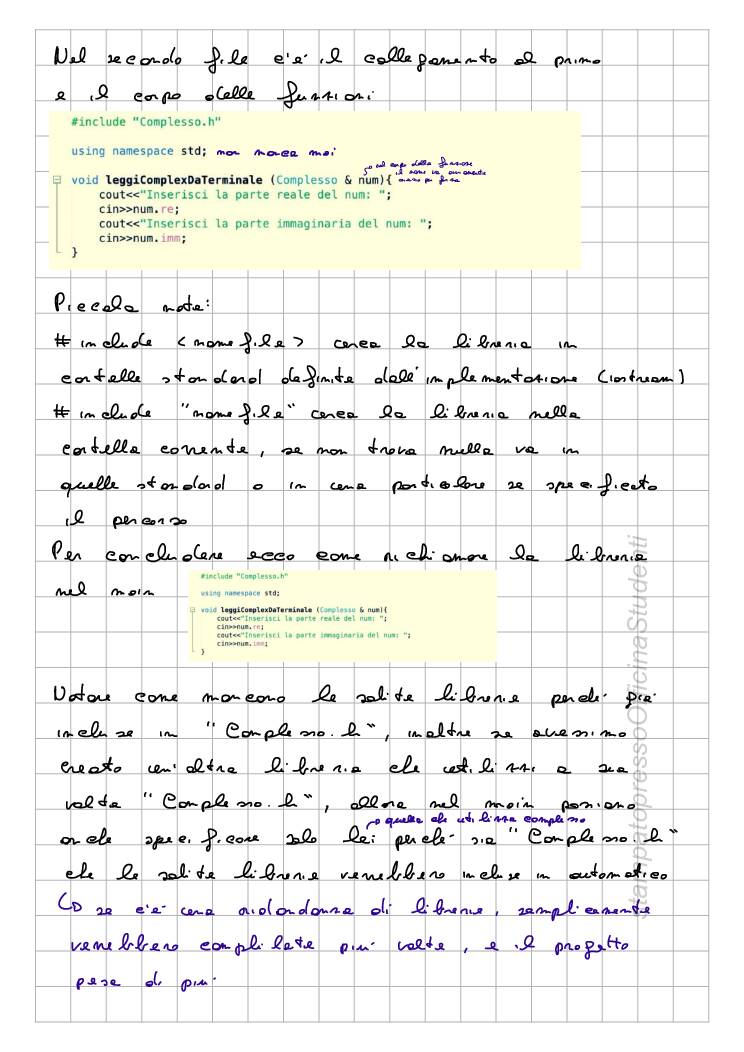 Nel secondo file c'è il collegamento al primo
e il corpo delle funzioni
#include "Complesso.h"
using namespace std; non manca mai
→ nel corpo della funzione
il nome va ovviamente
void leggiComplexDaTerminale (Complesso & num){
cout<<"Inserisci la parte reale del num: ";
cin>>num.re;
cout<<"Inserisci la parte immaginaria del num: ";
cin>>num.imm;
}
Piccola nota:
# include <nome file> cerca la libreria in
cartelle standard definite dall'implementazione (iostream)
# include "nome file" cerca la libreria nella
cartella corrente, se non trova nulla va in
quelle standard o in una particolare se specificato
il percorso
Per concludere ecco come richiamare la libreria
nel main
#include "Complesso.h"
using namespace std;
void leggiComplexDaTerminale (Complesso & num){
cout<<"Inserisci la parte reale del num: ";
cin>>num.re;
cout<<"Inserisci la parte immaginaria del num: ";
cin>>num.imm;
}
Notare come mancano le solite librerie perché già
incluse in "Complesso.h", inoltre se avessimo
creato un'altra libreria che utilizzi a sua
volta "Complesso.h", allora nel main possiamo
→ quella che utilizza complesso
anche specificare solo lei perché sia "Complesso.h"
che le solite librerie verrebbero incluse in automatico
↳ se c'è una ridondanza di librerie, semplicemente
verrebbero compilate più volte, e il progetto
pesa di più
stampatopressoOfficinaStudenti